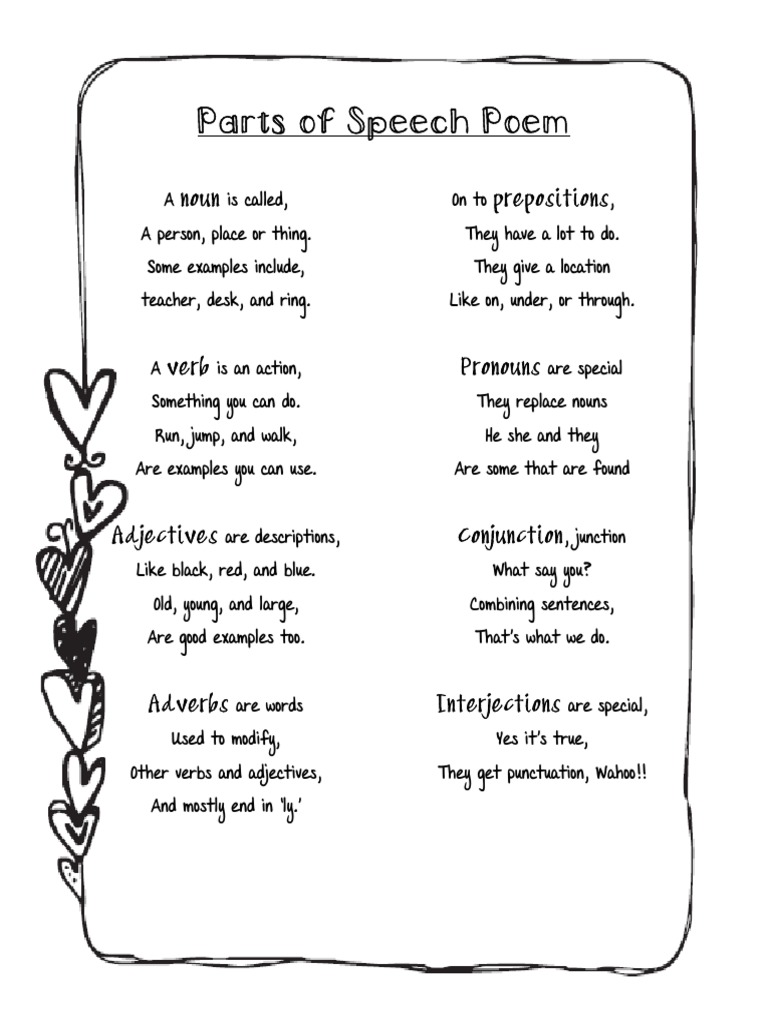 Parts of Speech Poem
A noun is called,
A person, place or thing.
Some examples include,
teacher, desk, and ring.
A verb is an action,
Something you can do.
Run, jump, and walk,
Are examples you can use.
Adjectives are descriptions,
Like black, red, and blue.
Old, young, and large,
Are good examples too.
Adverbs are words
Used to modify,
Other verbs and adjectives,
And mostly end in 'ly.'
On to prepositions,
They have a lot to do.
They give a location
Like on, under, or through.
Pronouns are special
They replace nouns
He she and they
Are some that are found
Conjunction, junction
What say you?
Combining sentences,
That's what we do.
Interjections are special,
Yes it's true,
They get punctuation, Wahoo!!